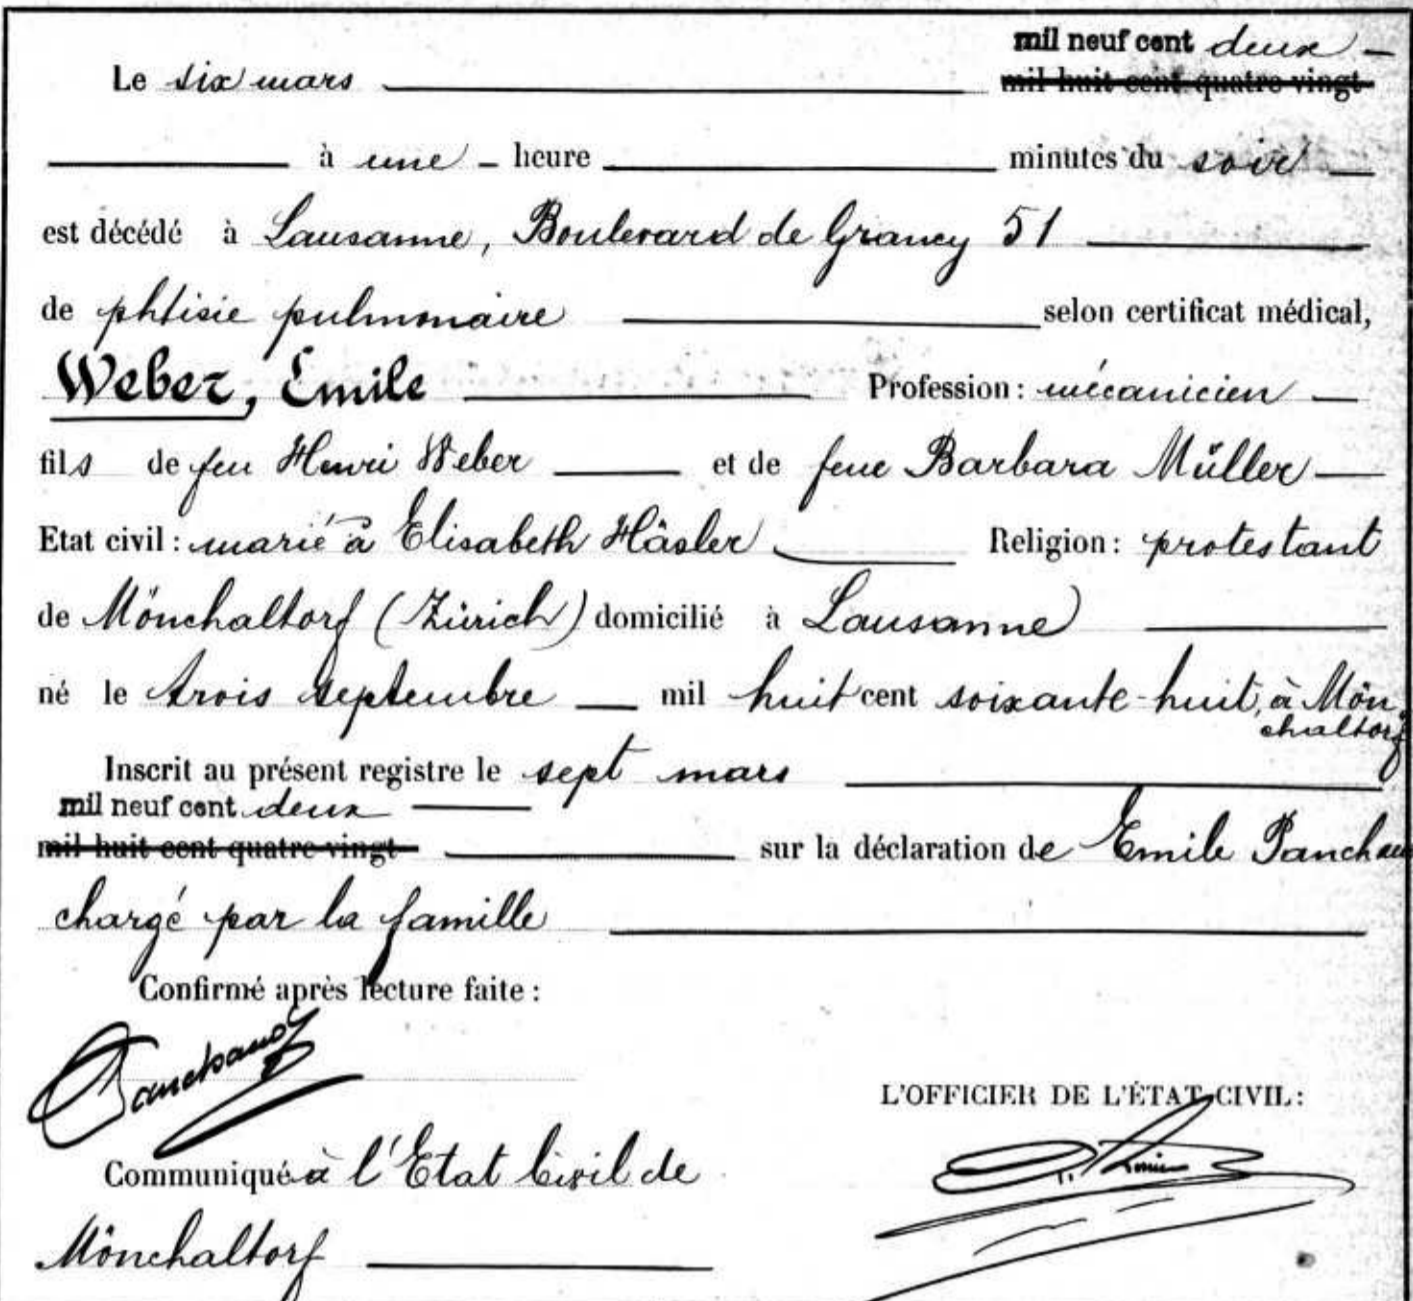 mil neuf cent deux
Le six mars mil huit cent quatre-vingt
à une heure minutes du soir
est décédé à Lausanne, Boulevard de Grancy 51
de phtisie pulmonaire selon certificat médical,
Weber, Emile Profession : mécanicien
fils de feu Henri Weber et de feue Barbara Müller
Etat civil : marié à Elisabeth Häsler Religion : protestant
de Mönchaltorf (Zürich) domicilié à Lausanne
né le trois septembre mil huit cent soixante-huit, à Mön-
chaltorf
Inscrit au présent registre le sept mars
mil neuf cent deux
mil huit cent quatre-vingt sur la déclaration de Emile Panchaud
chargé par la famille
Confirmé après lecture faite :
Panchaud
L'OFFICIER DE L'ÉTAT CIVIL :
Communiqué à l'Etat Civil de
Mönchaltorf